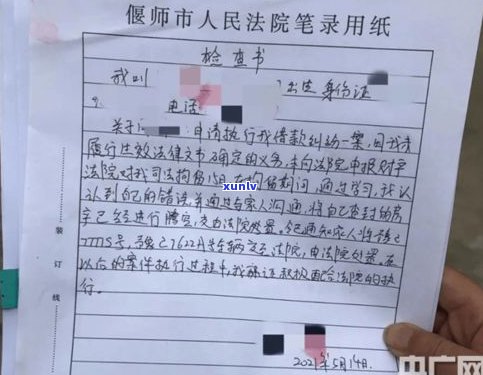 偃师市人民法院笔录用纸
检查书
我叫 出生 身份证
电话
关于 申请执行我借款纠纷一案，因我未
履行生效法律文书确定的义务，未向法院申报财产
法院对我司法拘留15日，在拘留期间，通过学习，我认
认到自己的错误，并通过与家人沟通，将自己查封的房
子已经进行腾空，交由法院处置。
号， 车辆交至法院，由法院处置。在
以后的案件执行过程中，我保证积极配合法院的执
行。
2021年5月14日
装
订
线
xunlv
www.xunlv.cn
中广网